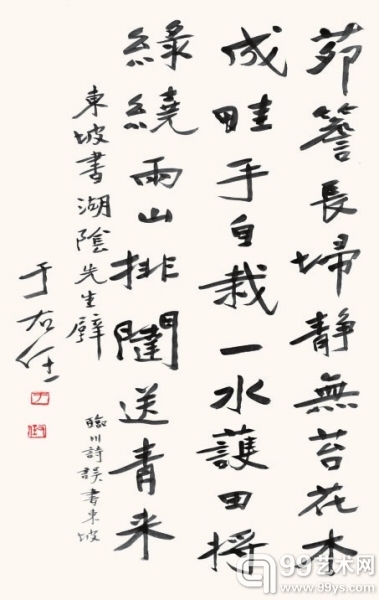 茆簷長埽靜無苔花木
成畦手自栽一水護田將
綠繞兩山排闥送青来
東坡書湖陰先生壁
于右任
臨川詩誤書東坡
99艺术网
www.99ys.com